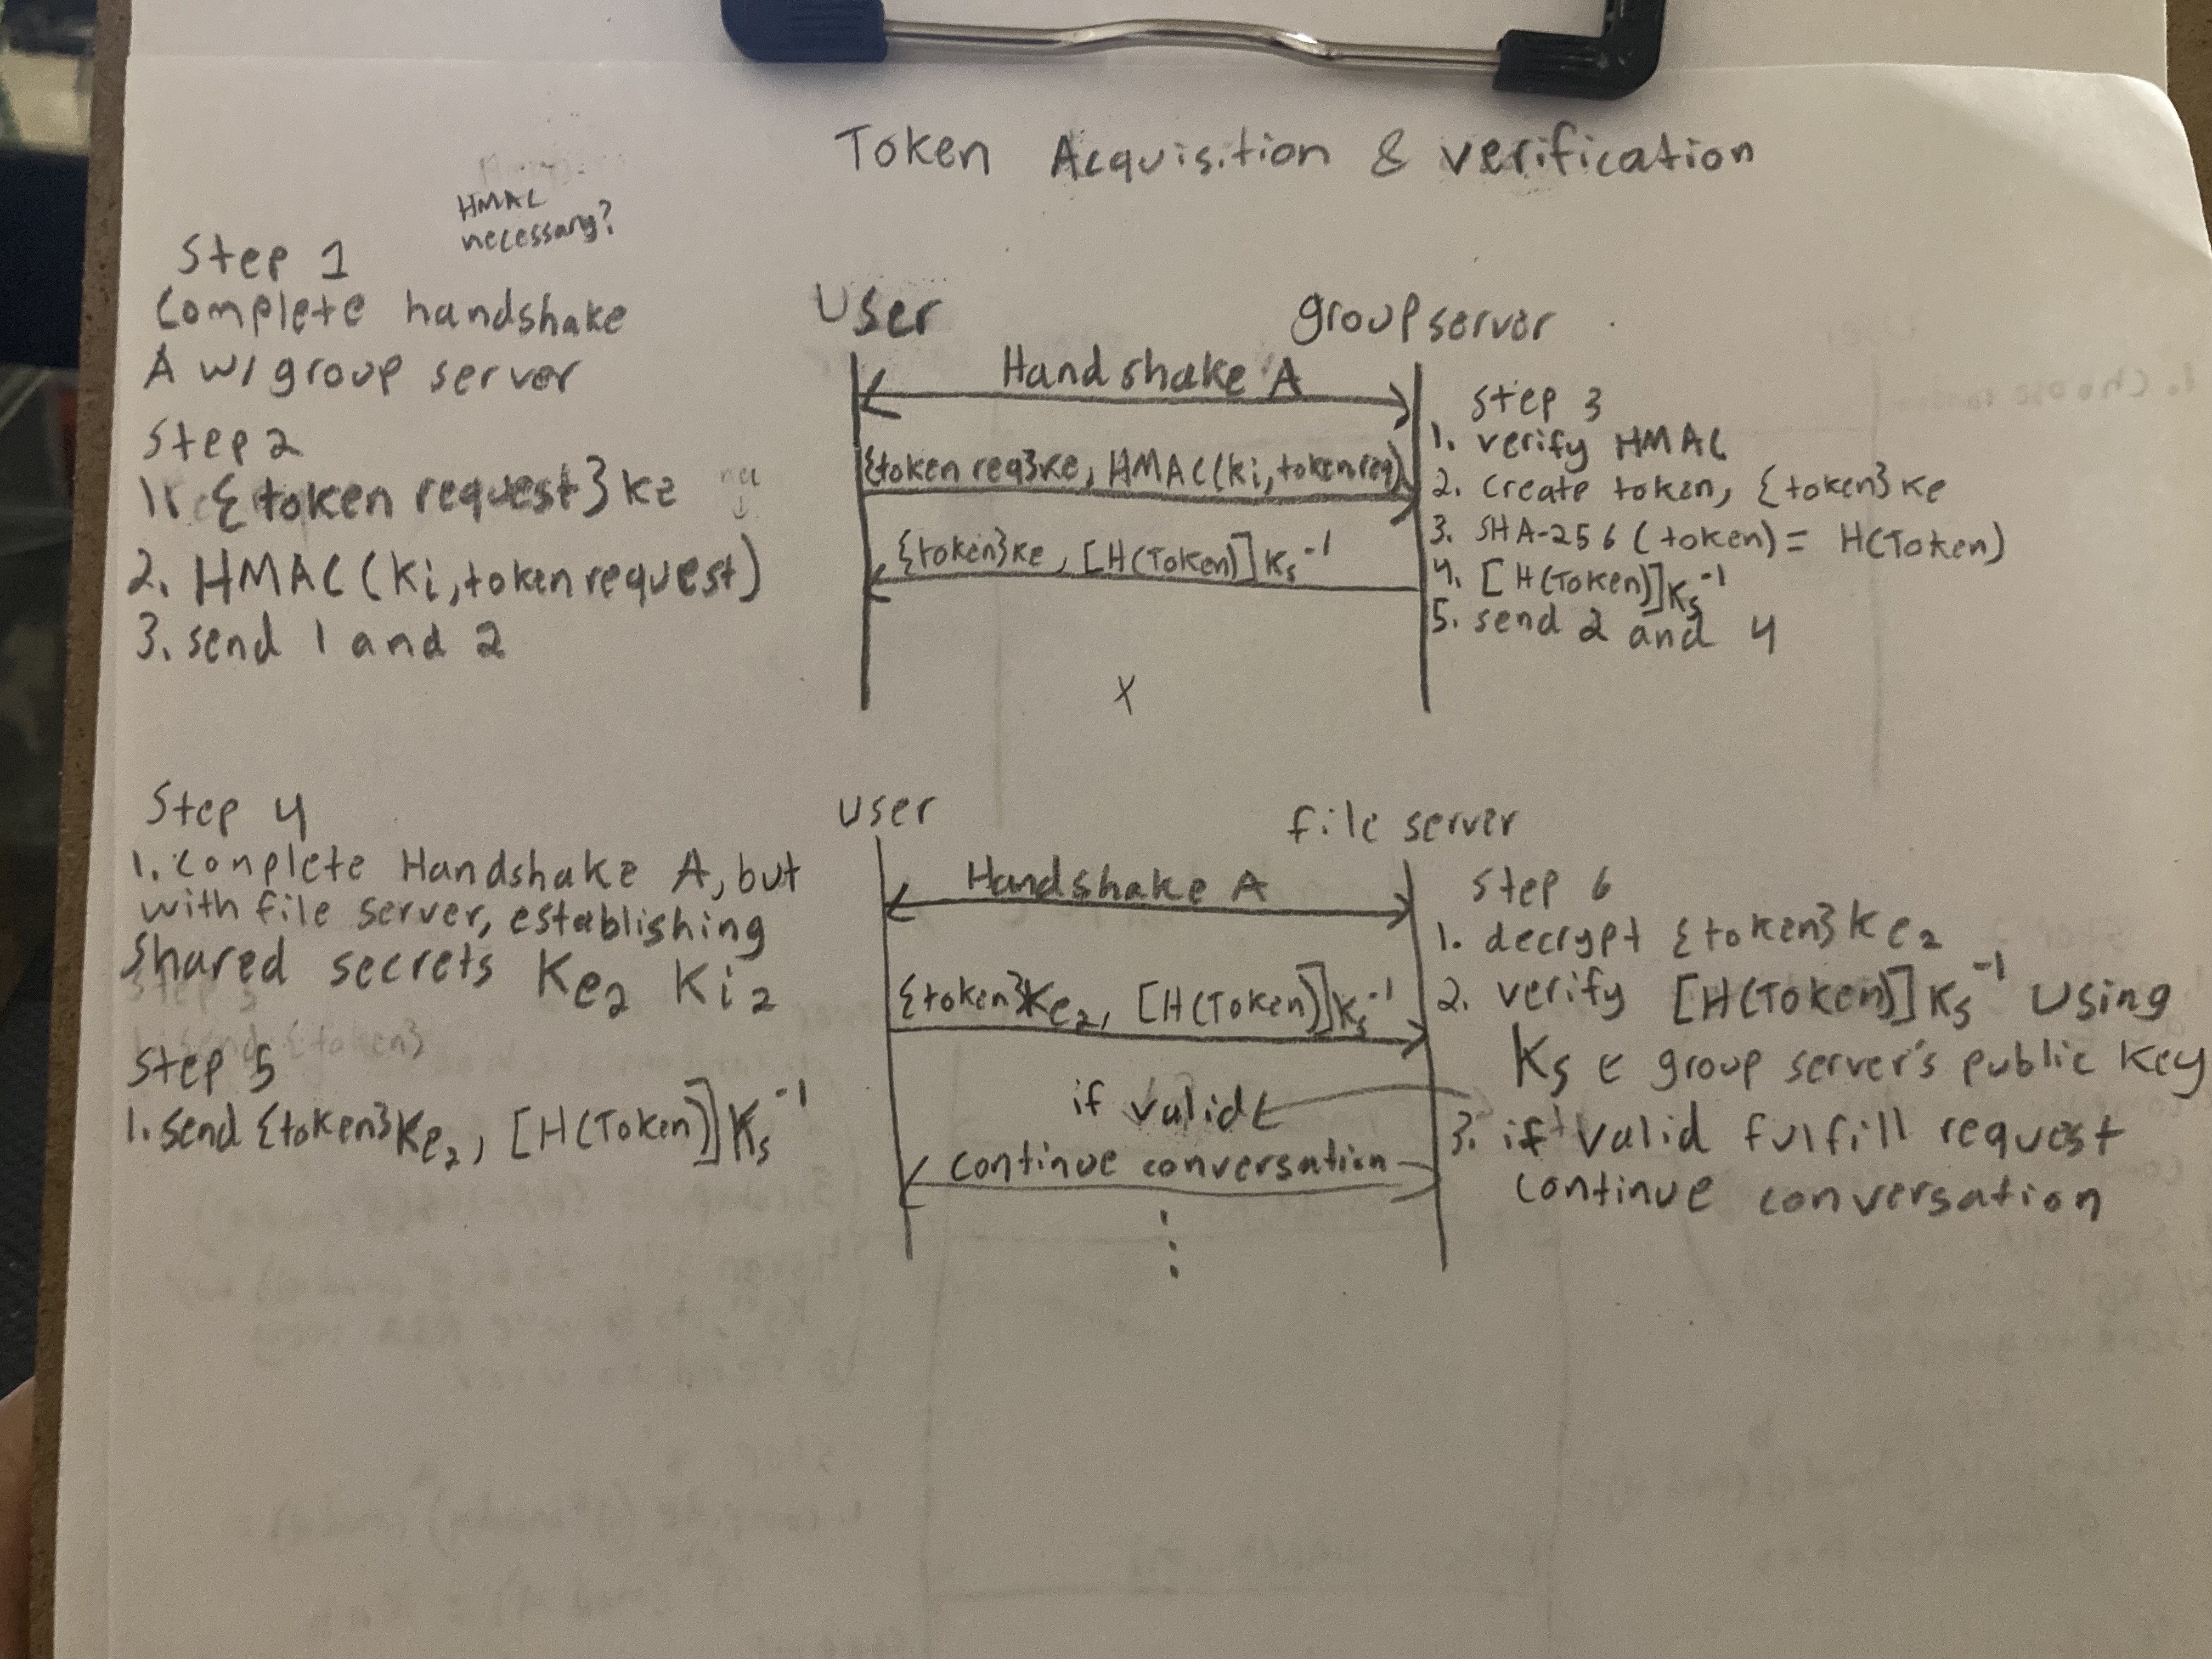 Token Acquisition & verification
HMAC
necessary?
Step 1
Complete handshake
A w/ group server
Step 2
1. {token request}ke
2. HMAC(ki, token request)
3. send 1 and 2
User
group server
Handshake A
{token req}ke, HMAC(ki, token req)
{token}ke, [H(Token)]Ks⁻¹
X
Step 3
1. verify HMAC
2. create token, {token}ke
3. SHA-256 (token) = H(Token)
4. [H(Token)]Ks⁻¹
5. send 2 and 4
Step 4
1. complete Handshake A, but
with file server, establishing
shared secrets Ke₂ Ki₂
Step 5
1. send {token}Ke₂, [H(Token)]Ks⁻¹
user
file server
Handshake A
{token}Ke₂, [H(Token)]Ks⁻¹
if valid
continue conversation
Step 6
1. decrypt {token}Ke₂
2. verify [H(Token)]Ks⁻¹ using
Ks ∈ group server's public key
3. if valid fulfill request
continue conversation